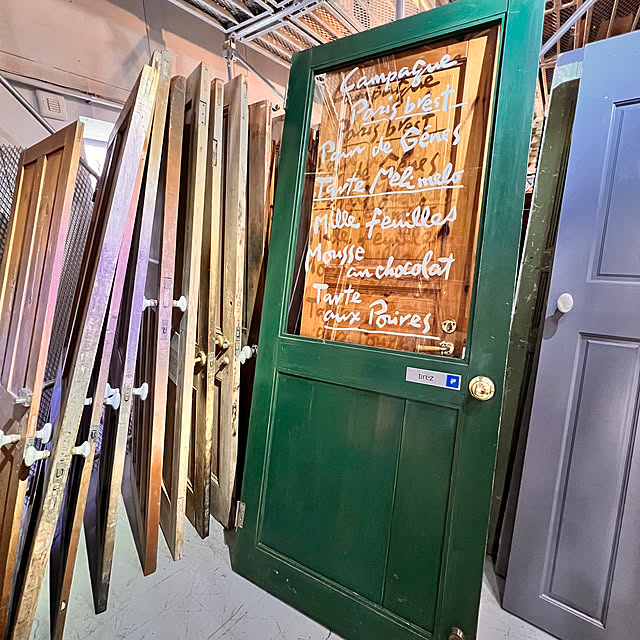 Campagne
Paris brest
Pain de Gênes
Tarte Meli melo
Mille feuilles
Mousse
au chocolat
Tarte
aux Poires
tirez